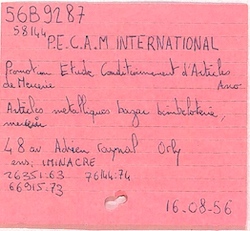 56B9287
58144
P.E.C.A.M. INTERNATIONAL
Promotion Etude Conditionnement d'Articles
de Mercerie Ano
Articles metalliques bazar bimbeloterie,
mercerie
48 av Adrien Raynal Orly
ens: IMINACRE
26351.63 76144.74
66915.73
16-08-56